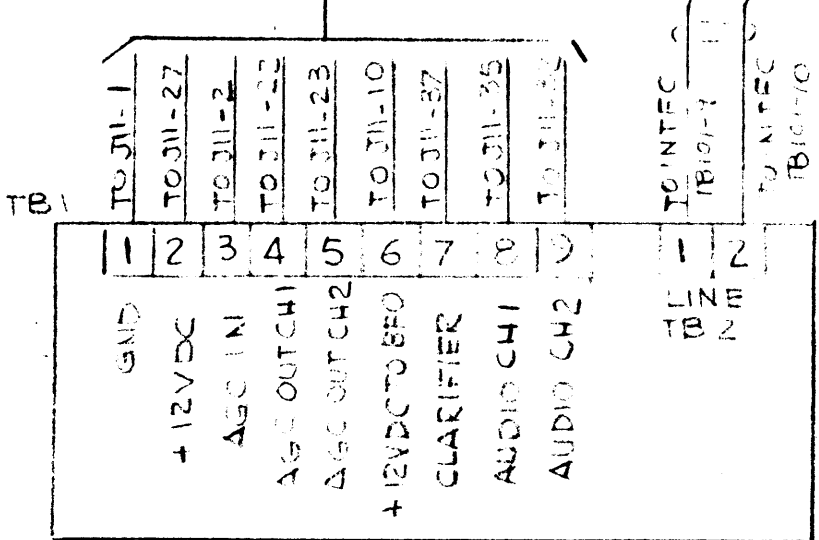 TO J11-1
TO J11-27
TO J11-2
TO J11-23
TO J11-10
TO J11-37
TO J11-35
TO INTFC
TB101-9
TO INTFC
TB101-10
TB1
1 2 3 4 5 6 7 8 9
1 2
LINE
TB 2
GND
+12VDC
AGC IN
AGC OUT CH1
AGC OUT CH2
+12VDC TO BFO
CLARIFIER
AUDIO CH1
AUDIO CH2